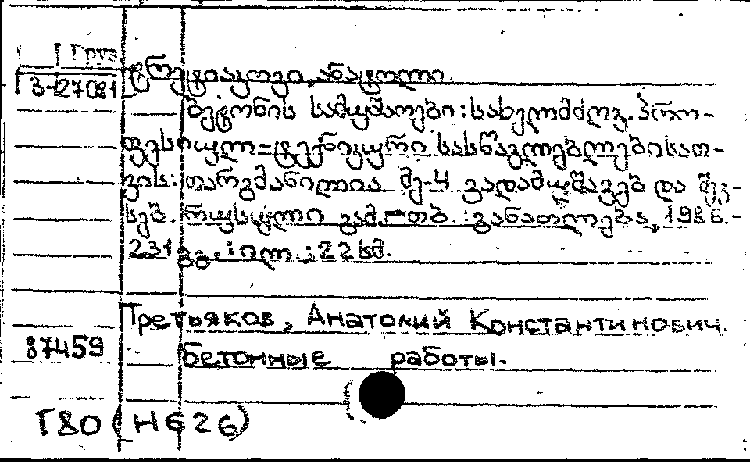 Груз
3-27081 ტრეტიაკოვი, ანატოლი.
ბეტონის სამუშაოები : სახელმძღვ. პრო-
ფესიულ-ტექნიკური სასწავლებლებისათ-
ვის : თარგმანილია მე-4 გადამუშავებ და შევ-
სებ. რუსული გამ. - თბ. : განათლება, 1986. -
231 გვ. : ილ ; 22 სმ.
Третьяков, Анатолий Константинович.
87459 бетонные работы.
Т80 (Н626)